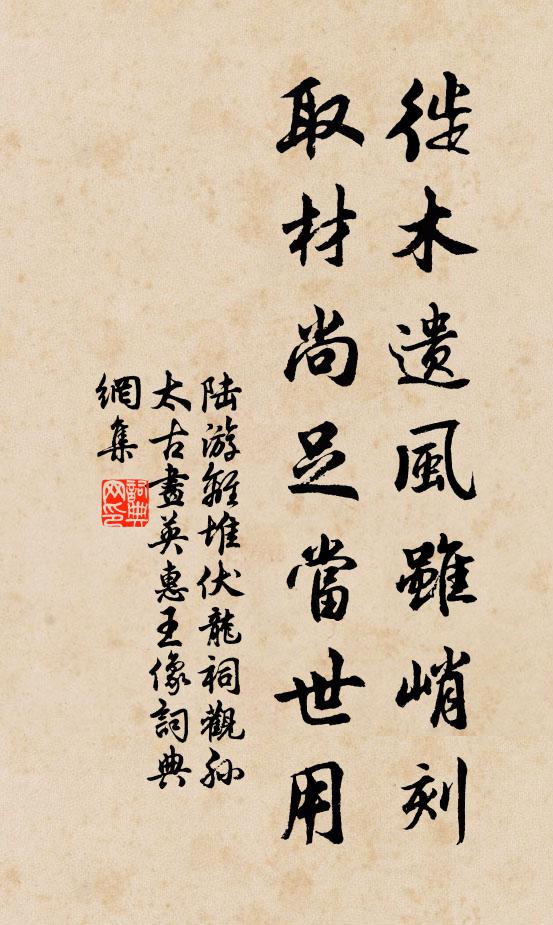 徙木遺風雖峭刻
取材尚足當世用
陸游離堆伏龍祠觀孫
太古畫英惠王像詞典
網集
詞典
網印